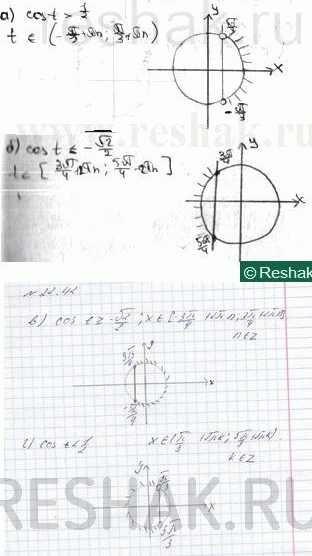 а) cos t > 1/2
t ∈ (-π/3+2πn; π/3+2πn)
y
π/3
x
-π/3
www.reshak.ru
б) cos t ≤ -√2/2
t ∈ [3π/4+2πn; 5π/4+2πn]
y
3π/4
x
5π/4
© Reshak
№ 22.42
в) cos t ≥ -√2/2; x ∈ [-3π/4+2πn; 3π/4+2πn]
n ∈ Z
y
3π/4
x
г) cos t < 1/2
x ∈ (π/3+2πk; 5π/3+2πk)
k ∈ Z
y
π/3
x
5π/3
RESHAK.RU